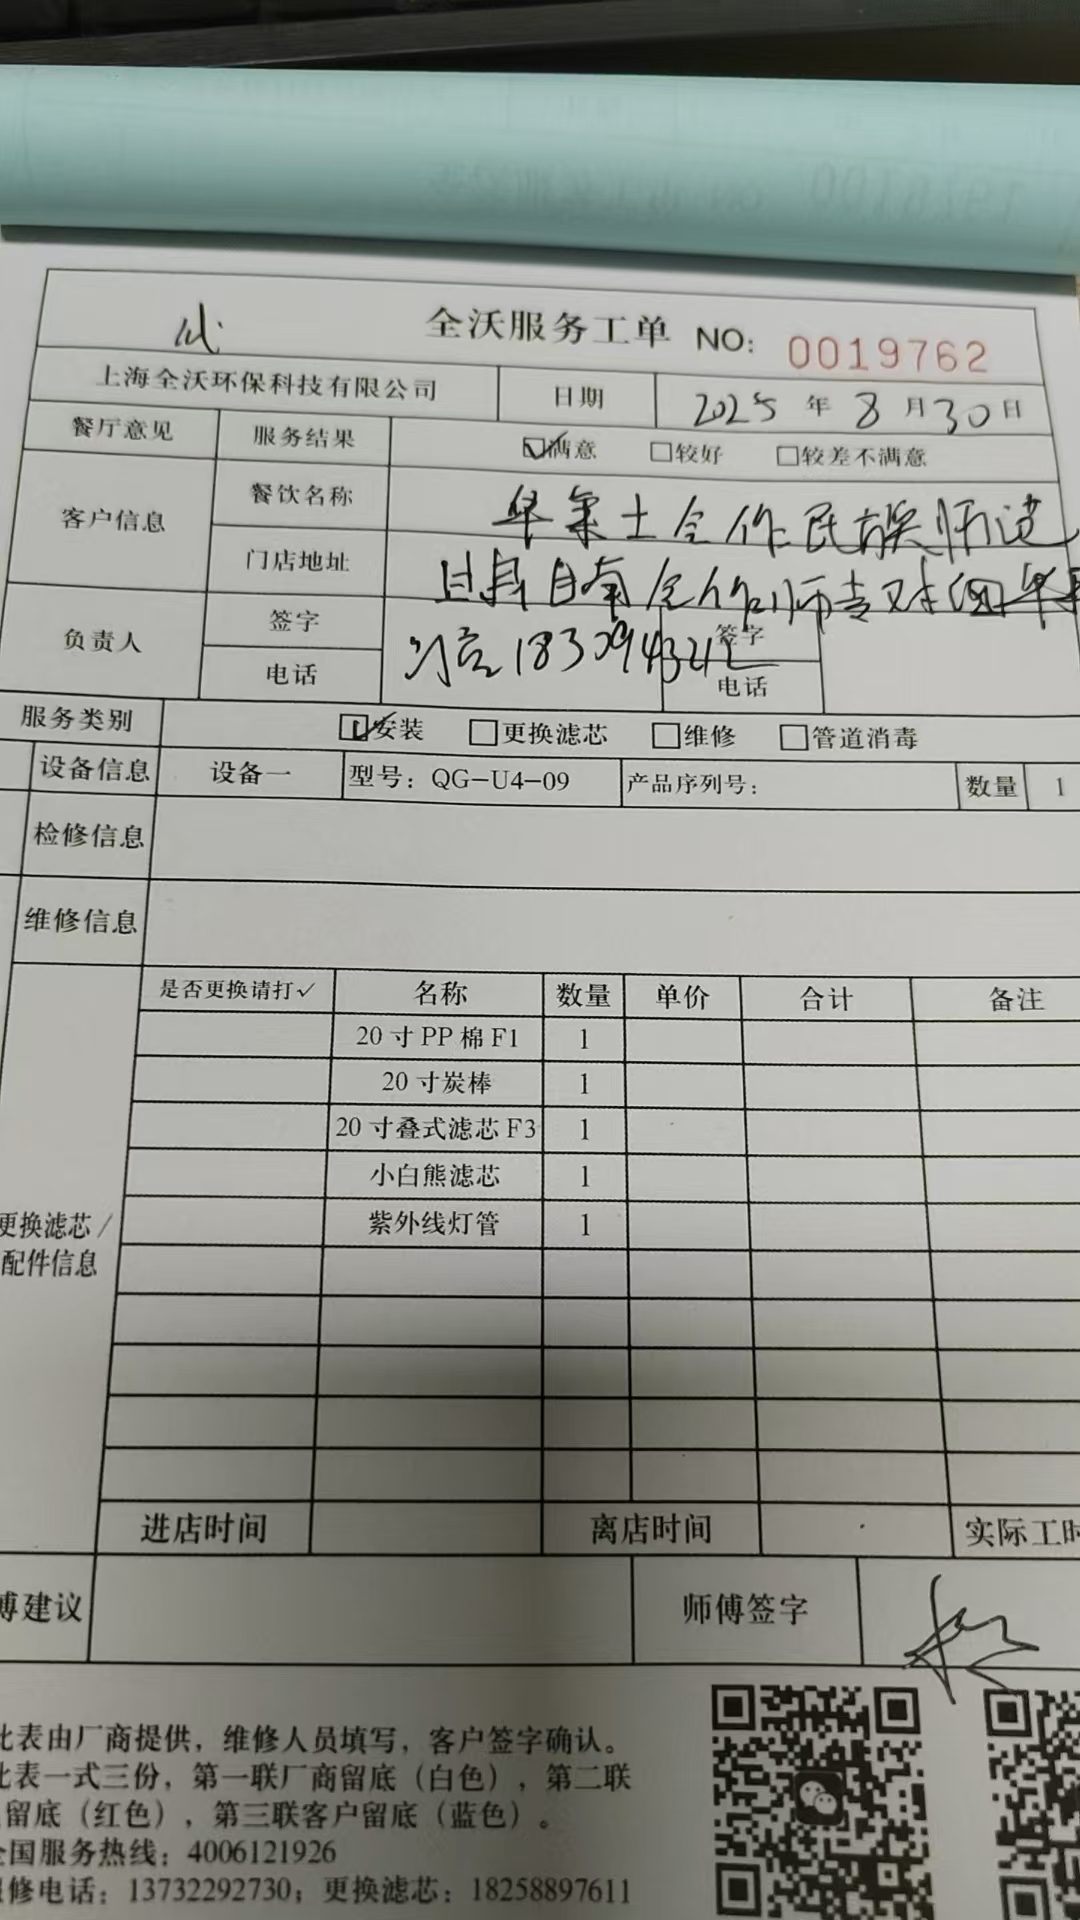 全沃服务工单 NO: 0019762
上海全沃环保科技有限公司 日期 2025 年 8 月 30 日
餐厅意见 服务结果 满意 较好 较差不满意
客户信息 餐饮名称 华莱士合作民族师范
门店地址 甘南合作师专对面华
负责人 签字 签字
电话 电话
服务类别 安装 更换滤芯 维修 管道消毒
设备信息 设备一 型号：QG-U4-09 产品序列号： 数量 1
检修信息
维修信息
是否更换请打✓ 名称 数量 单价 合计 备注
20寸PP棉F1 1
20寸炭棒 1
20寸叠式滤芯F3 1
小白熊滤芯 1
紫外线灯管 1
更换滤芯/
配件信息
进店时间 离店时间 实际工时
傅建议 师傅签字
此表由厂商提供，维修人员填写，客户签字确认。
此表一式三份，第一联厂商留底（白色），第二联
留底（红色），第三联客户留底（蓝色）。
全国服务热线：4006121926
修电话：13732292730；更换滤芯：18258897611